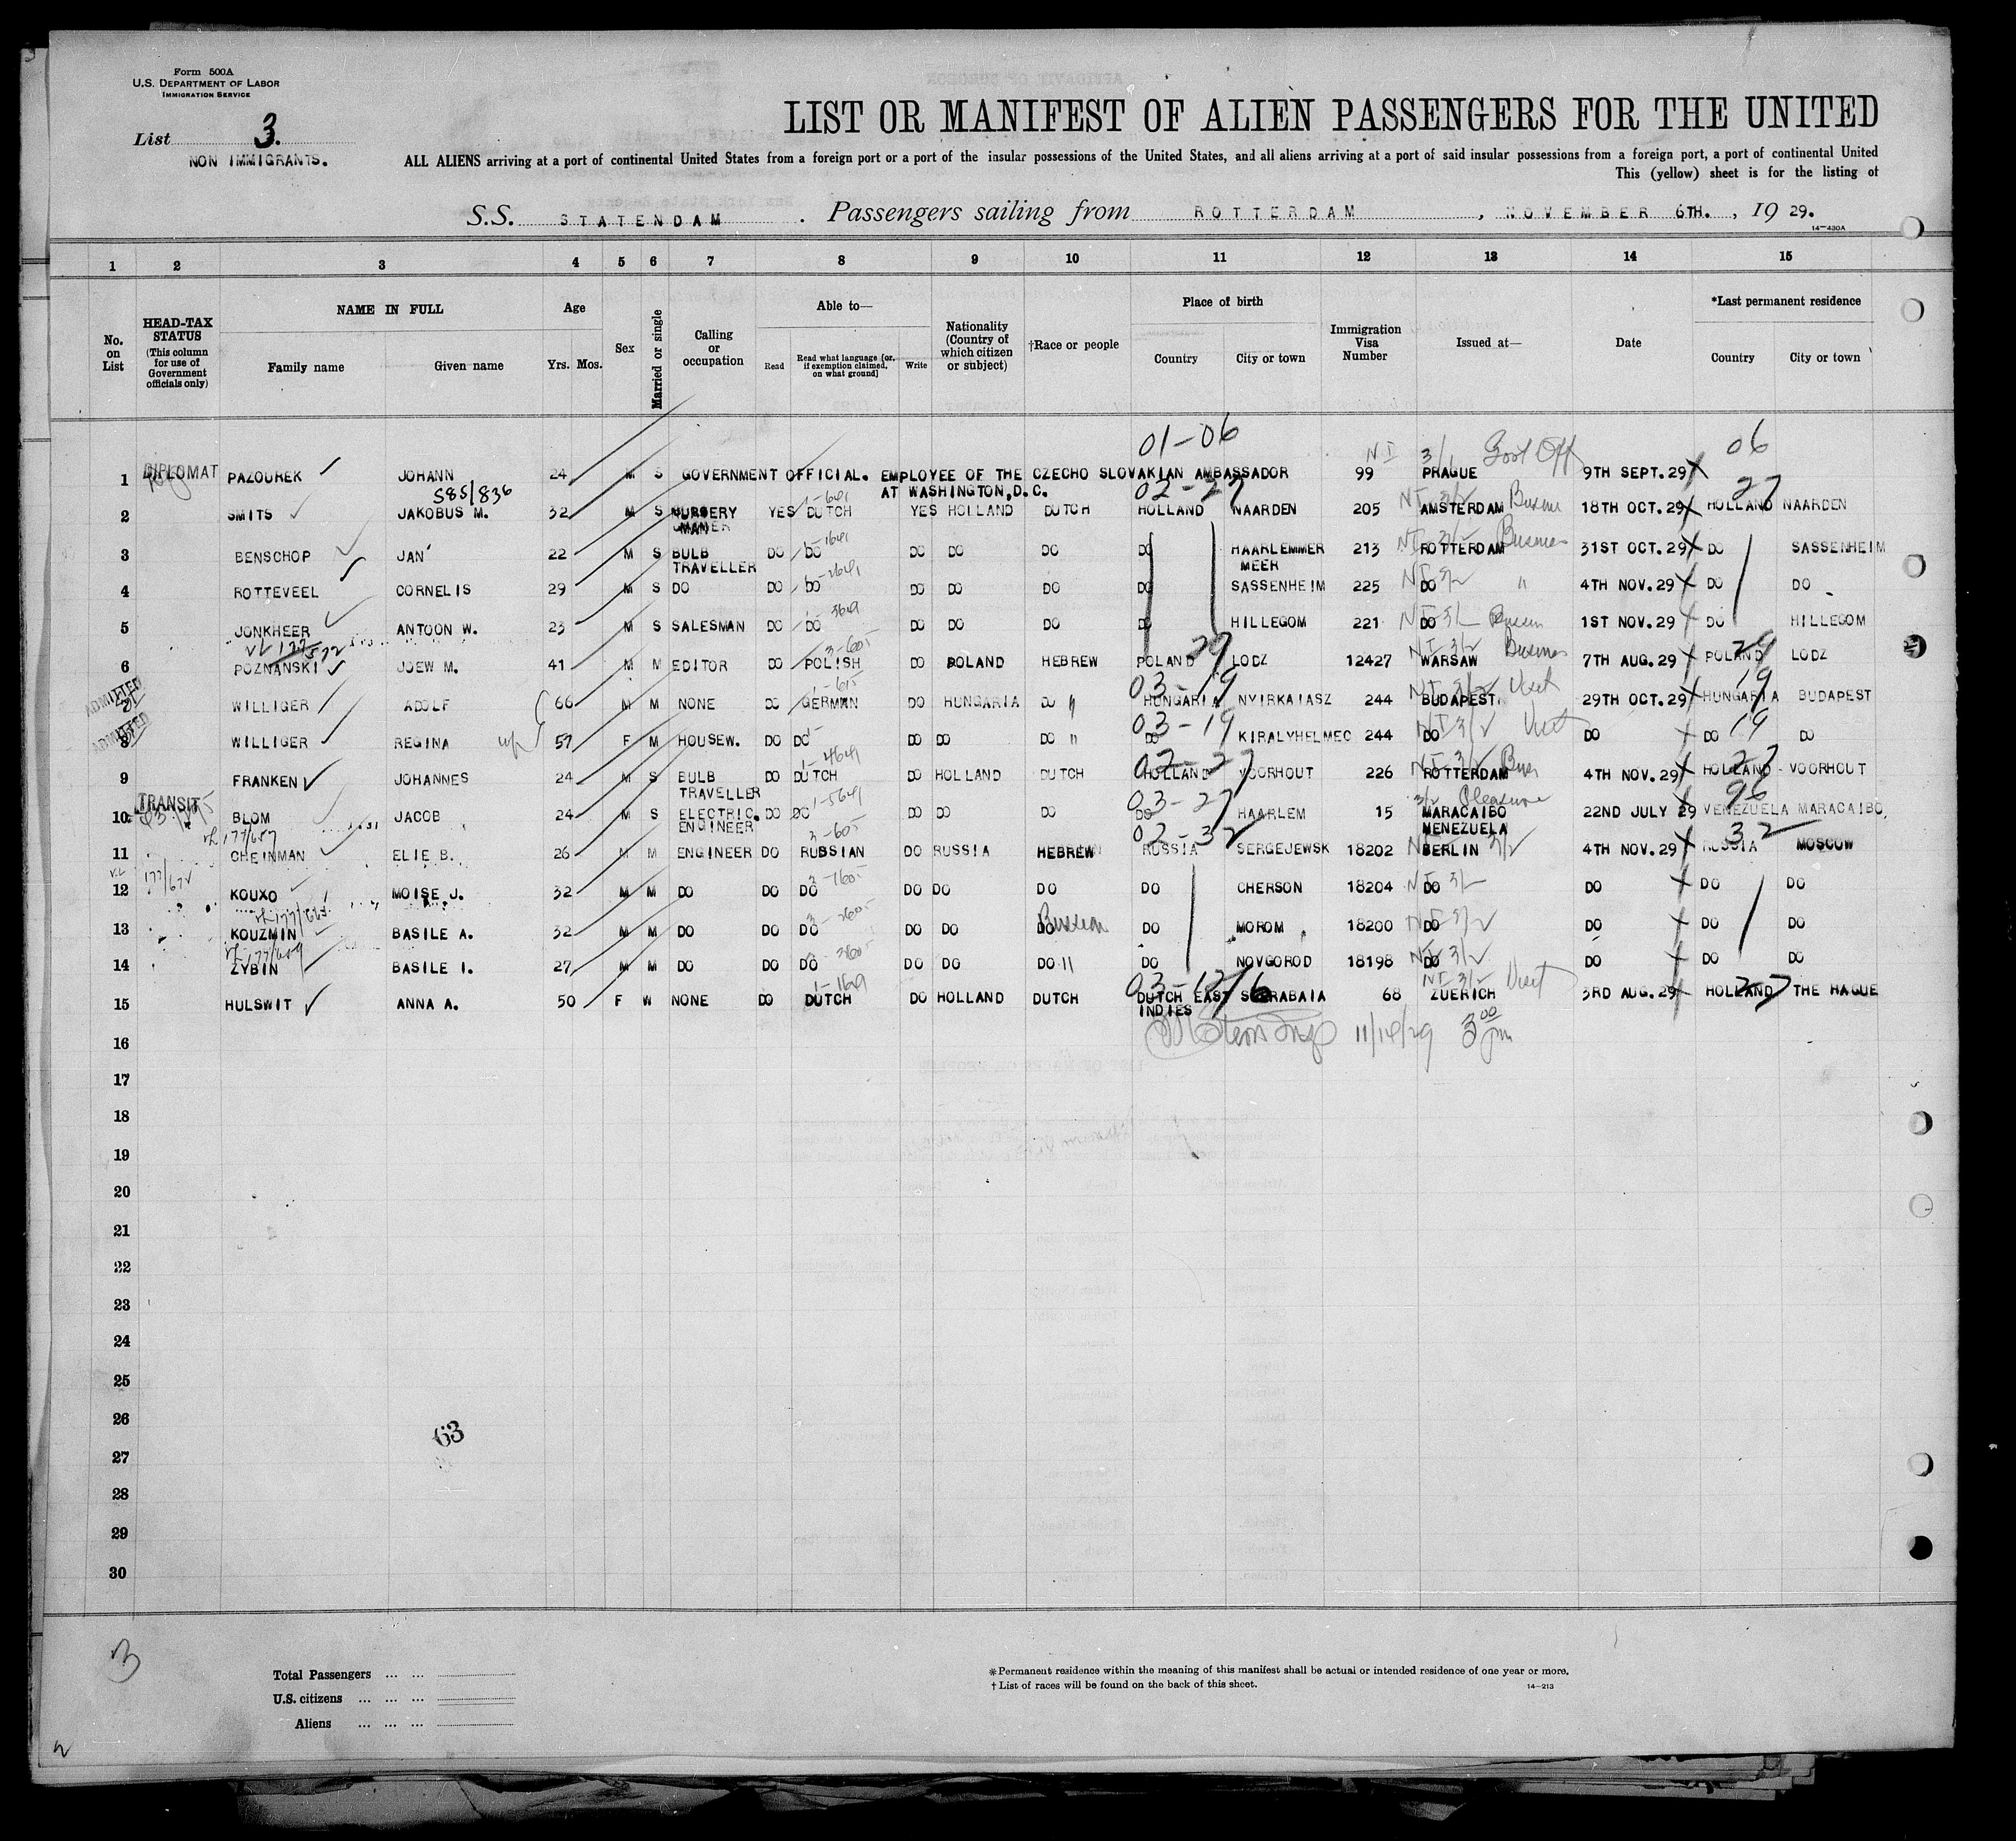 Form 500A
U.S. DEPARTMENT OF LABOR
IMMIGRATION SERVICE
List 3.
NON IMMIGRANTS.
LIST OR MANIFEST OF ALIEN PASSENGERS FOR THE UNITED
ALL ALIENS arriving at a port of continental United States from a foreign port or a port of the insular possessions of the United States, and all aliens arriving at a port of said insular possessions from a foreign port, a port of continental United
This (yellow) sheet is for the listing of
S.S. STATENDAM . Passengers sailing from ROTTERDAM , NOVEMBER 6TH. , 19 29.
14-430A
1 2 3 4 5 6 7 8 9 10 11 12 13 14 15
No. on List
HEAD-TAX STATUS (This column for use of Government officials only)
NAME IN FULL
Family name Given name
Age
Yrs. Mos.
Sex
Married or single
Calling or occupation
Able to—
Read Read what language [or, if exemption claimed, on what ground] Write
Nationality (Country of which citizen or subject)
†Race or people
Place of birth
Country City or town
Immigration Visa Number
Issued at—
Date
*Last permanent residence
Country City or town
01-06 06
NI 3/1 Govt Off
1 DIPLOMAT PAZOUREK JOHANN 24 M S GOVERNMENT OFFICIAL. EMPLOYEE OF THE CZECHO SLOVAKIAN AMBASSADOR 99 PRAGUE 9TH SEPT.29
585/836 AT WASHINGTON,D.C. 02-27 27
2 SMITS JAKOBUS M. 32 M S NURSERY MAN YES DUTCH YES HOLLAND DUTCH HOLLAND NAARDEN 205 NI 3/2 AMSTERDAM 18TH OCT.29 HOLLAND NAARDEN
3 BENSCHOP JAN 22 M S BULB TRAVELLER DO DO DO DO DO DO HAARLEMMER MEER 213 NI 3/2 ROTTERDAM Business 31ST OCT.29 DO SASSENHEIM
4 ROTTEVEEL CORNELIS 29 M S DO DO DO DO DO DO DO SASSENHEIM 225 NI 3/2 DO " 4TH NOV.29 DO DO
5 JONKHEER ANTOON W. 23 M S SALESMAN DO DO DO DO DO DO HILLEGOM 221 NI 3/2 DO 1ST NOV.29 DO HILLEGOM
VL 177/572
6 POZNANSKI JOEW M. 41 M M EDITOR DO POLISH DO POLAND HEBREW POLAND 29 LODZ 12427 NI 3/2 WARSAW Business 7TH AUG.29 POLAND 29 LODZ
ADMITTED 03-19 19
7 WILLIGER ADOLF 66 M M NONE DO GERMAN DO HUNGARIA DO " HUNGARIA NYIRKAIASZ 244 NI 3/2 BUDAPEST. Visit 29TH OCT.29 HUNGARIA BUDAPEST
ADMITTED 03-19 19
8 WILLIGER REGINA 57 F M HOUSEW. DO DO DO DO DO " DO KIRALYHELMEC 244 NI 3/2 DO Visit DO DO DO
02-27 27
9 FRANKEN JOHANNES 24 M S BULB TRAVELLER DO DUTCH DO HOLLAND DUTCH HOLLAND VOORHOUT 226 NI 3/2 ROTTERDAM 4TH NOV.29 HOLLAND VOORHOUT
TRANSIT 03-27 96
10 BLOM JACOB 24 M S ELECTRIC. ENGINEER DO DO DO DO DO DO HAARLEM 15 3/2 Pleasure MARACAIBO VENEZUELA 22ND JULY 29 VENEZUELA MARACAIBO,
VL 177/657 02-32 32
11 CHEINMAN ELIE B. 26 M M ENGINEER DO RUSSIAN DO RUSSIA HEBREW RUSSIA SERGEJEWSK 18202 BERLIN 3/2 4TH NOV.29 RUSSIA MOSCOW
VL 177/672
12 KOUXO MOISE J. 32 M M DO DO DO DO DO DO DO CHERSON 18204 NI 3/2 DO DO DO DO
13 KOUZMIN BASILE A. 32 M M DO DO DO DO DO DO Russian DO MOROM 18200 NI 3/2 DO DO DO DO
VL 177/659
14 ZYBIN BASILE I. 27 M M DO DO DO DO DO DO " DO NOVGOROD 18198 NI 3/2 DO DO DO DO
15 HULSWIT ANNA A. 50 F W NONE DO DUTCH DO HOLLAND DUTCH DUTCH EAST INDIES SOERABAIA 68 NI 3/2 ZUERICH Visit 3RD AUG.29 HOLLAND 27 THE HAGUE
16 11/14/29 3 00 pm
17
18
19
20
21
22
23
24
25
26
27
28
29
30
63
3
Total Passengers ... ...
U.S. citizens ... ... ...
Aliens ... ... ...
*Permanent residence within the meaning of this manifest shall be actual or intended residence of one year or more.
†List of races will be found on the back of this sheet.
14-213